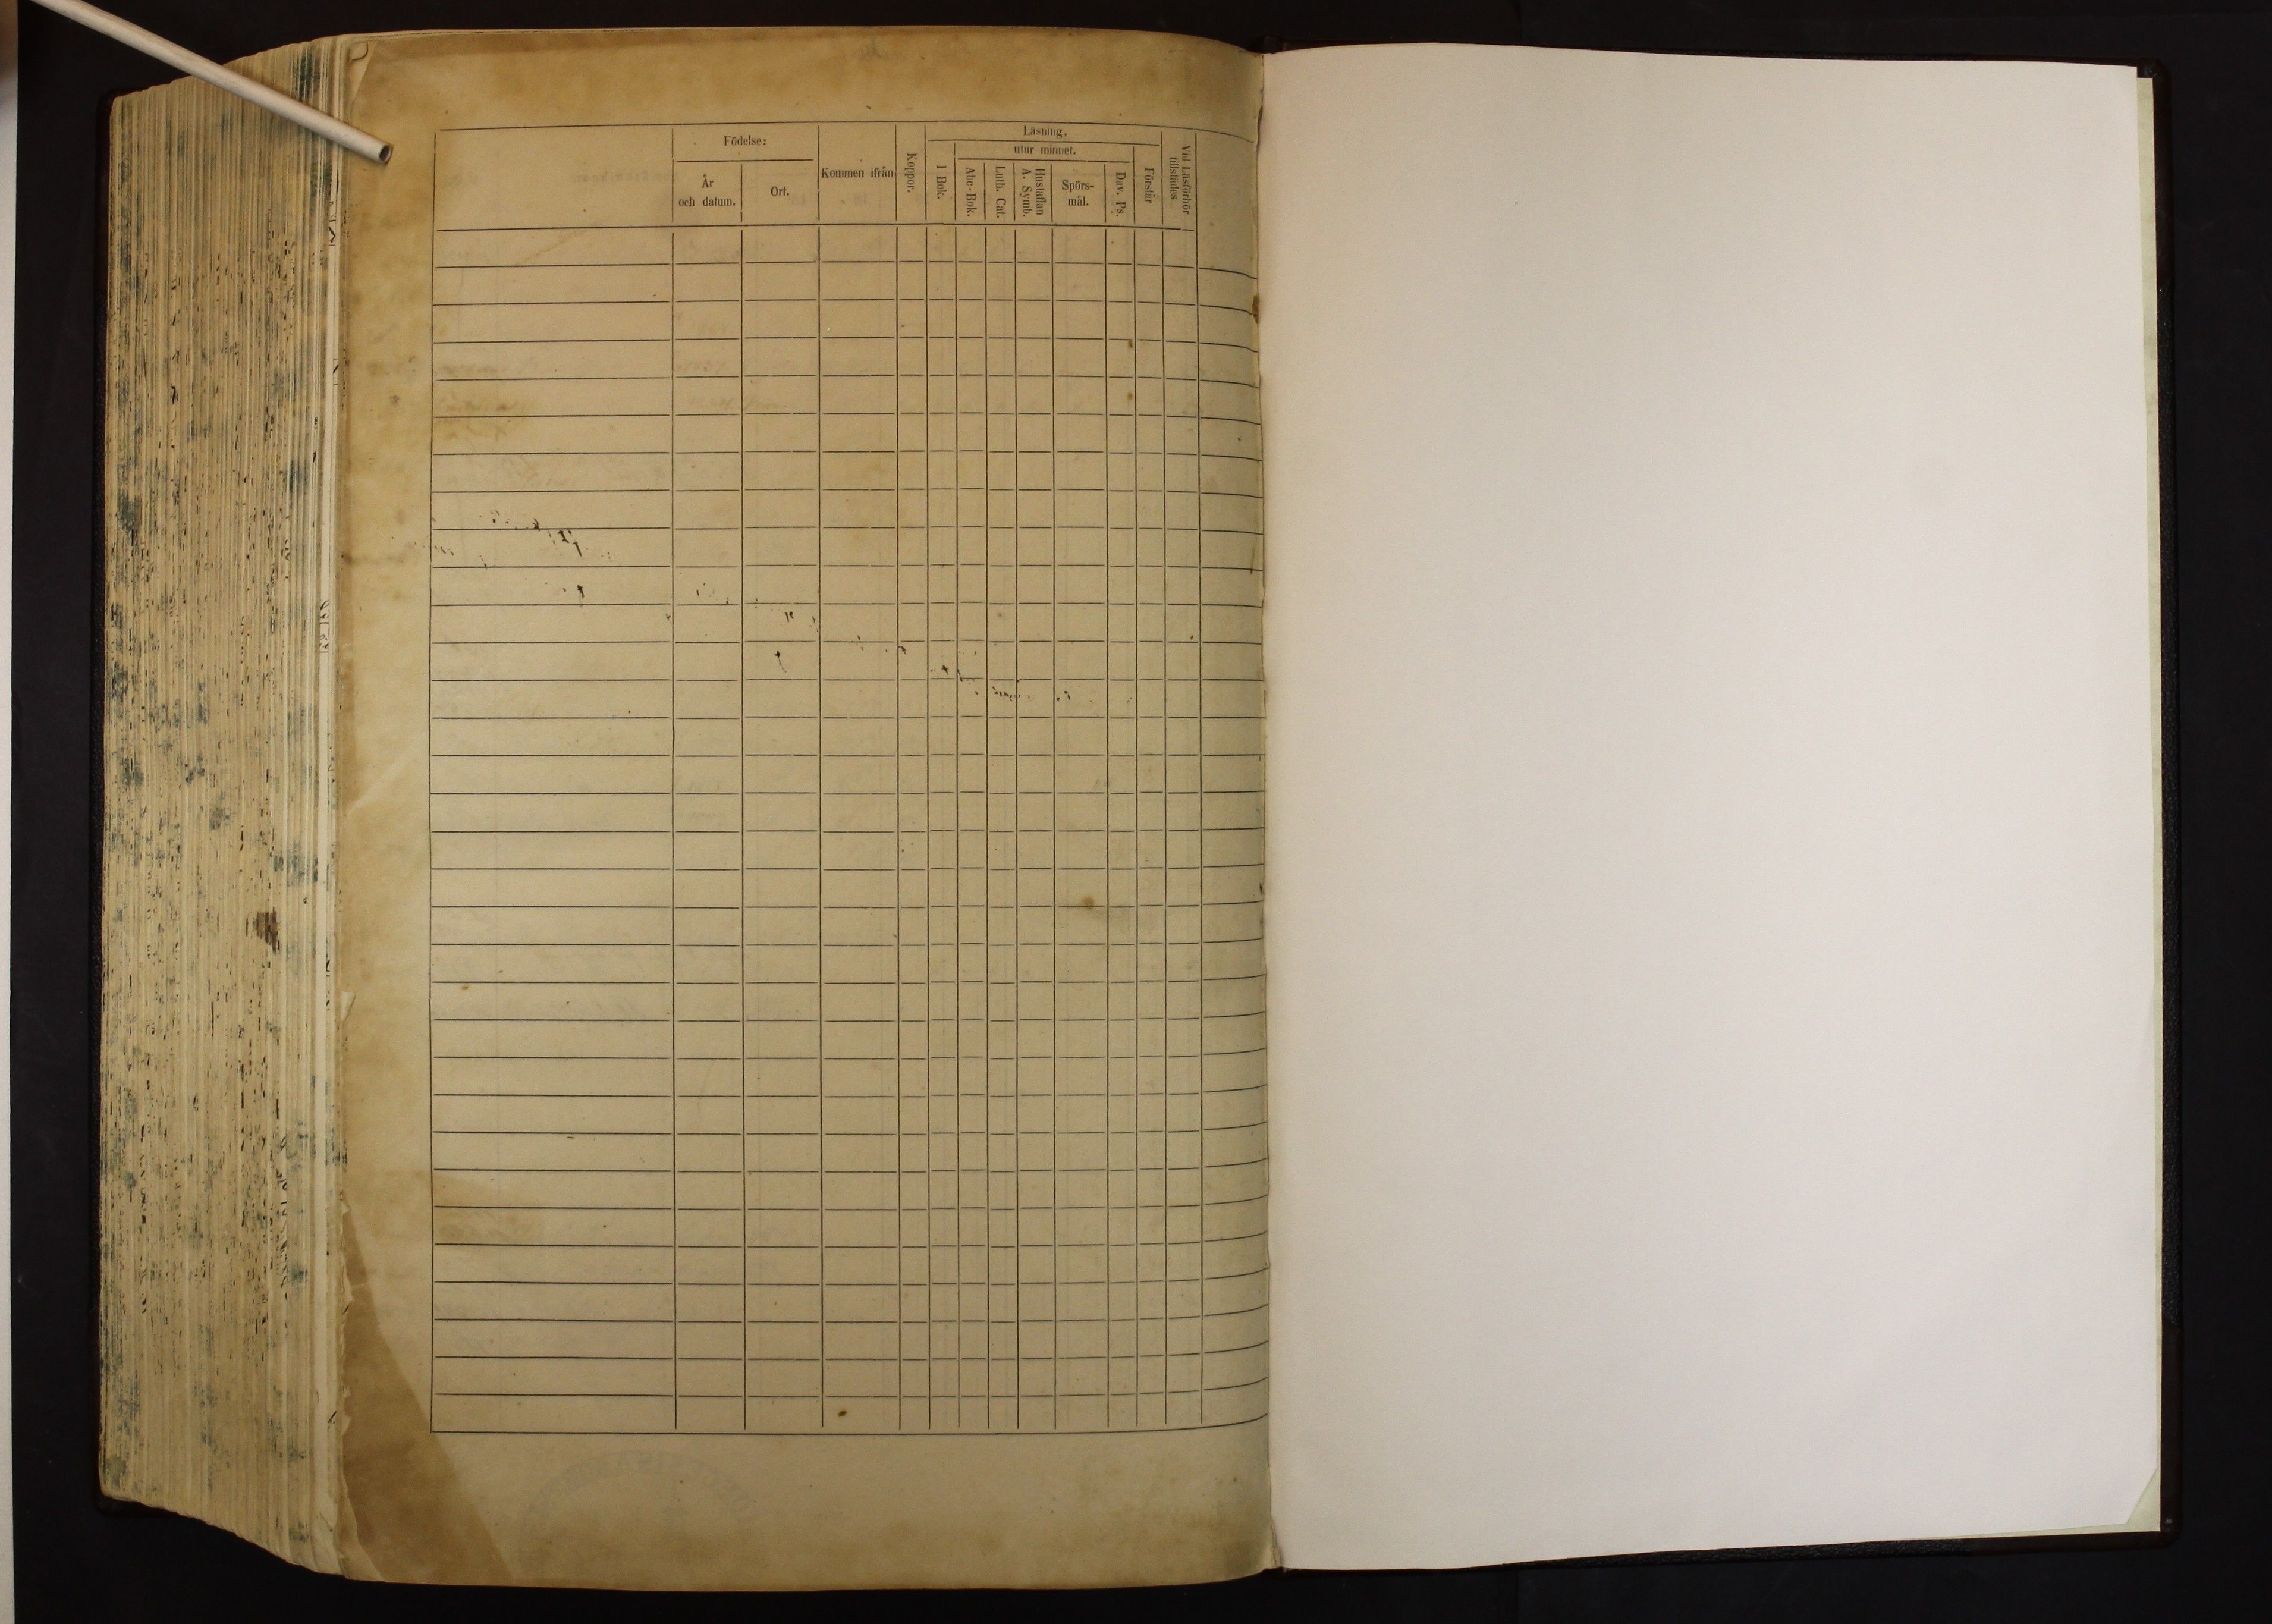 Födelse:
År
och datum.
Ort.
Kommen ifrån
Koppor.
Läsning,
utur minnet.
I Bok.
Abc-Bok.
Luth. Cat.
Hustaflan
A. Symb.
Spörs-
mål.
Dav. Ps.
Förstår
Vid Läsförhör
tillstädes